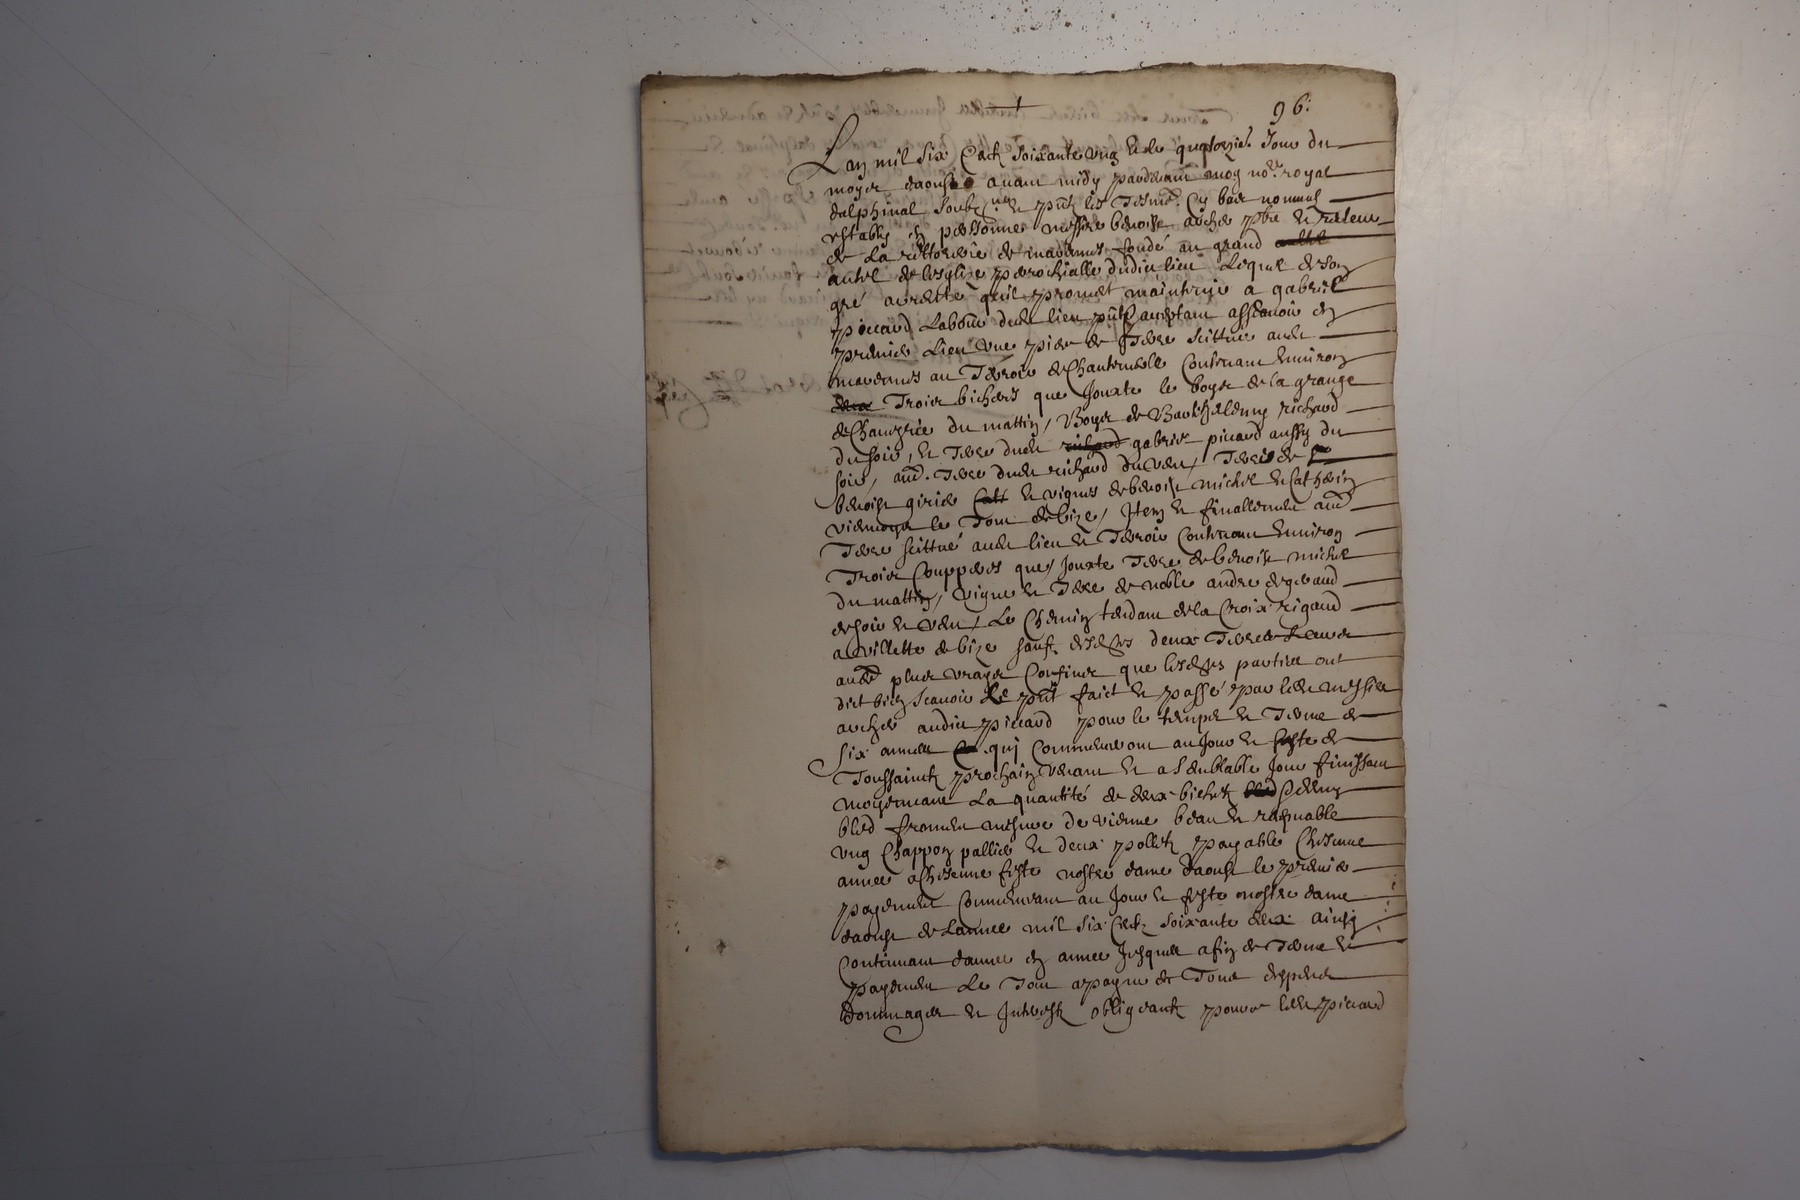 96:
Lan mil six Centz soixante ung et le quatorzie. Jour du
moys daoust avant midy pardevant moy no.re royal
dalphinal soubz.né et pñtz les tesmō. Cy bas nommés
estably en personne messire benoist archer pbre et recteur
de la rettorerie de fondé au grand
autel de lesglize parochialle dudict lieu Lequel de son
gré acrette quil promet maintenir a gabriel
piccard Labour. dud. lieu pñt acceptant assavoir en
premier Lieu une piece de Terre scittuée aud.
au Terroir de Chantemelle Contenant environ
Trois bicherés que Jouxte le boys de la grange
de du mattin, Boys de Barthelemy richard
du soir, et Terre dud. gabriel picard aussy du
soir, Terre dud. richard du vent, Terre de
benoist girier et vignes de benoist michel et Catherin
le Tout de bize, Item et finallement
Terre scittué aud. lieu et Terroir Contenant environ
Trois Coupperés que Jouxte Terre de benoist michel
du mattin, vigne et Terre de noble andre
de soir et vent, Le Chemin tendant de la Croix rigaud
a Villette de bize sauf desd. deux Terres
plus vrayes Confines que lesd. parties ont
dict bien scavoir Le pñt faict et passé par led. messire
archer audict piccard pour le temps et Terme de
six années qui Commenceront au Jour et feste de
Toussainctz prochain venant et a semblable Jour finissant
moyennant La quantité de deux bichetz
bled froment mesure de vienne beau et
ung Chappon pallier et deux polletz payable Chescune
année a Chescune feste nostre dame daoust le premier
payement Commencant au Jour et feste nostre dame
daoust de Lannée mil six Centz soixante deux ainsy
Continuant dannée en année Jusques a fin de Terme et
payement Le Tout a payne de Tous despens
dommages et Interestz obligeantz pour ce led. piccard